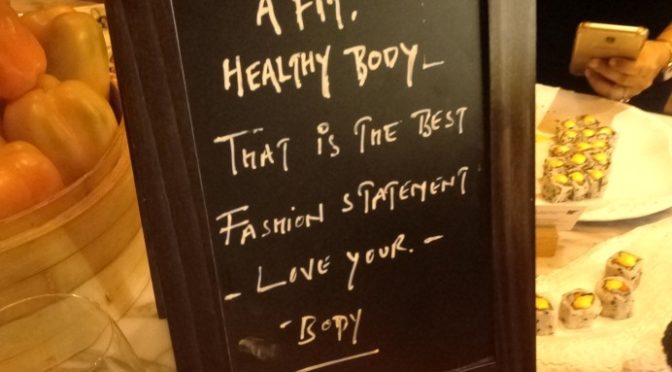 A FIT.
HEALTHY BODY_
THAT IS THE BEST
FASHION STATEMENT
- LOVE YOUR. -
- BODY